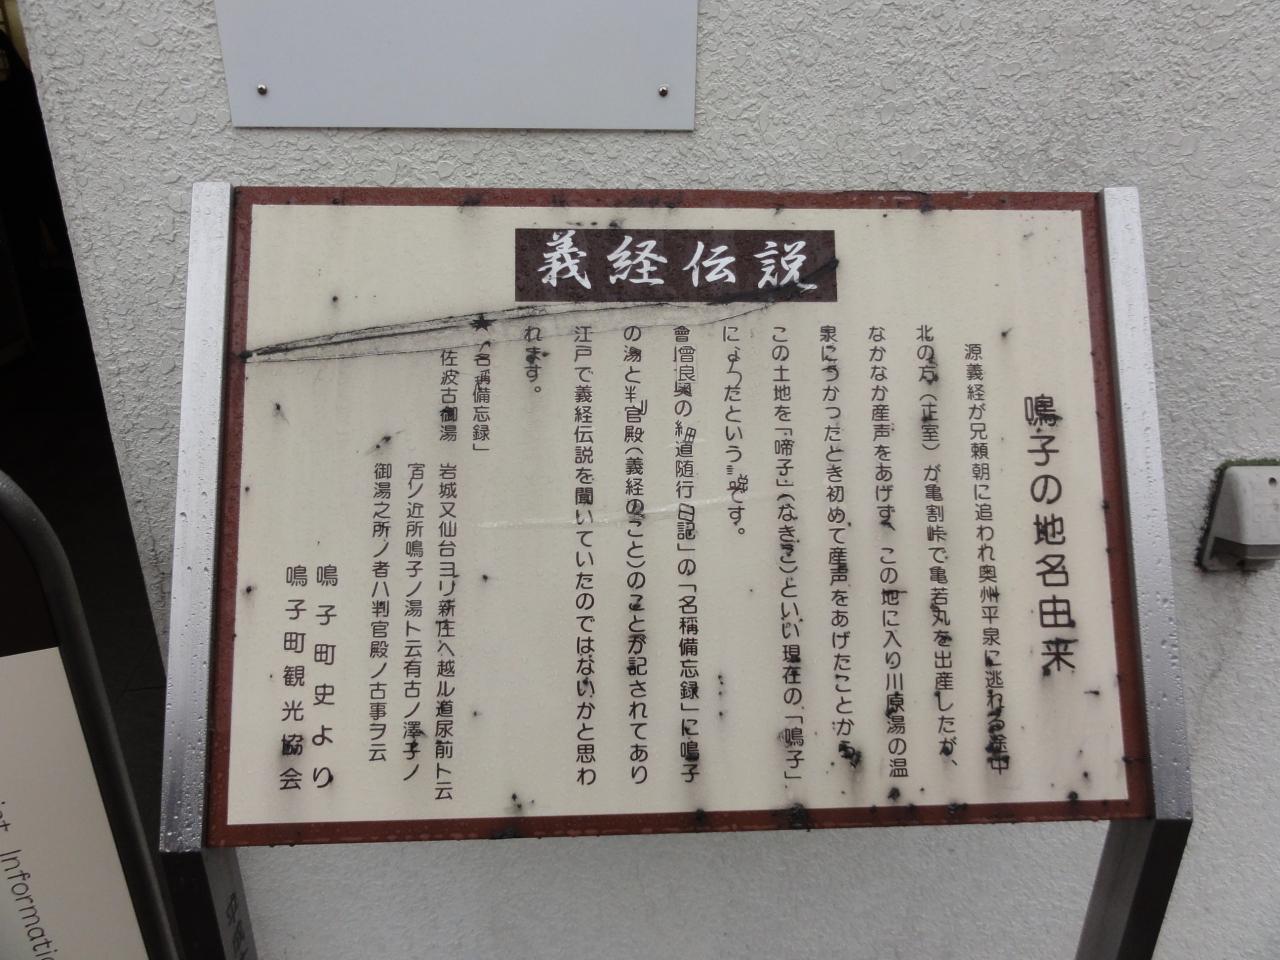 義経伝説
鳴子の地名由来
源義経が兄頼朝に追われ奥州平泉に逃れる途中
北の方(正室)が亀割峠で亀若丸を出産したが、
なかなか産声をあげず、この地に入り川原湯の温
泉につかったとき初めて産声をあげたことから
この土地を「啼子」(なきこ)といい現在の「鳴子」
によったという説です。
曾良奥の細道随行日記」の「名稱備忘録」に鳴子
の湯と判官殿(義経のこと)のことが記されてあり
江戸で義経伝説を聞いていたのではないかと思わ
れます。
★「名稱備忘録」
佐波古御湯 岩城又仙台ヨリ新庄ヘ越ル道尿前ト云
宮ノ近所鳴子ノ湯ト云有古ノ澤子ノ
御湯之所ノ者ハ判官殿ノ古事ヲ云
鳴子町史より
鳴子町観光協会
Informatio